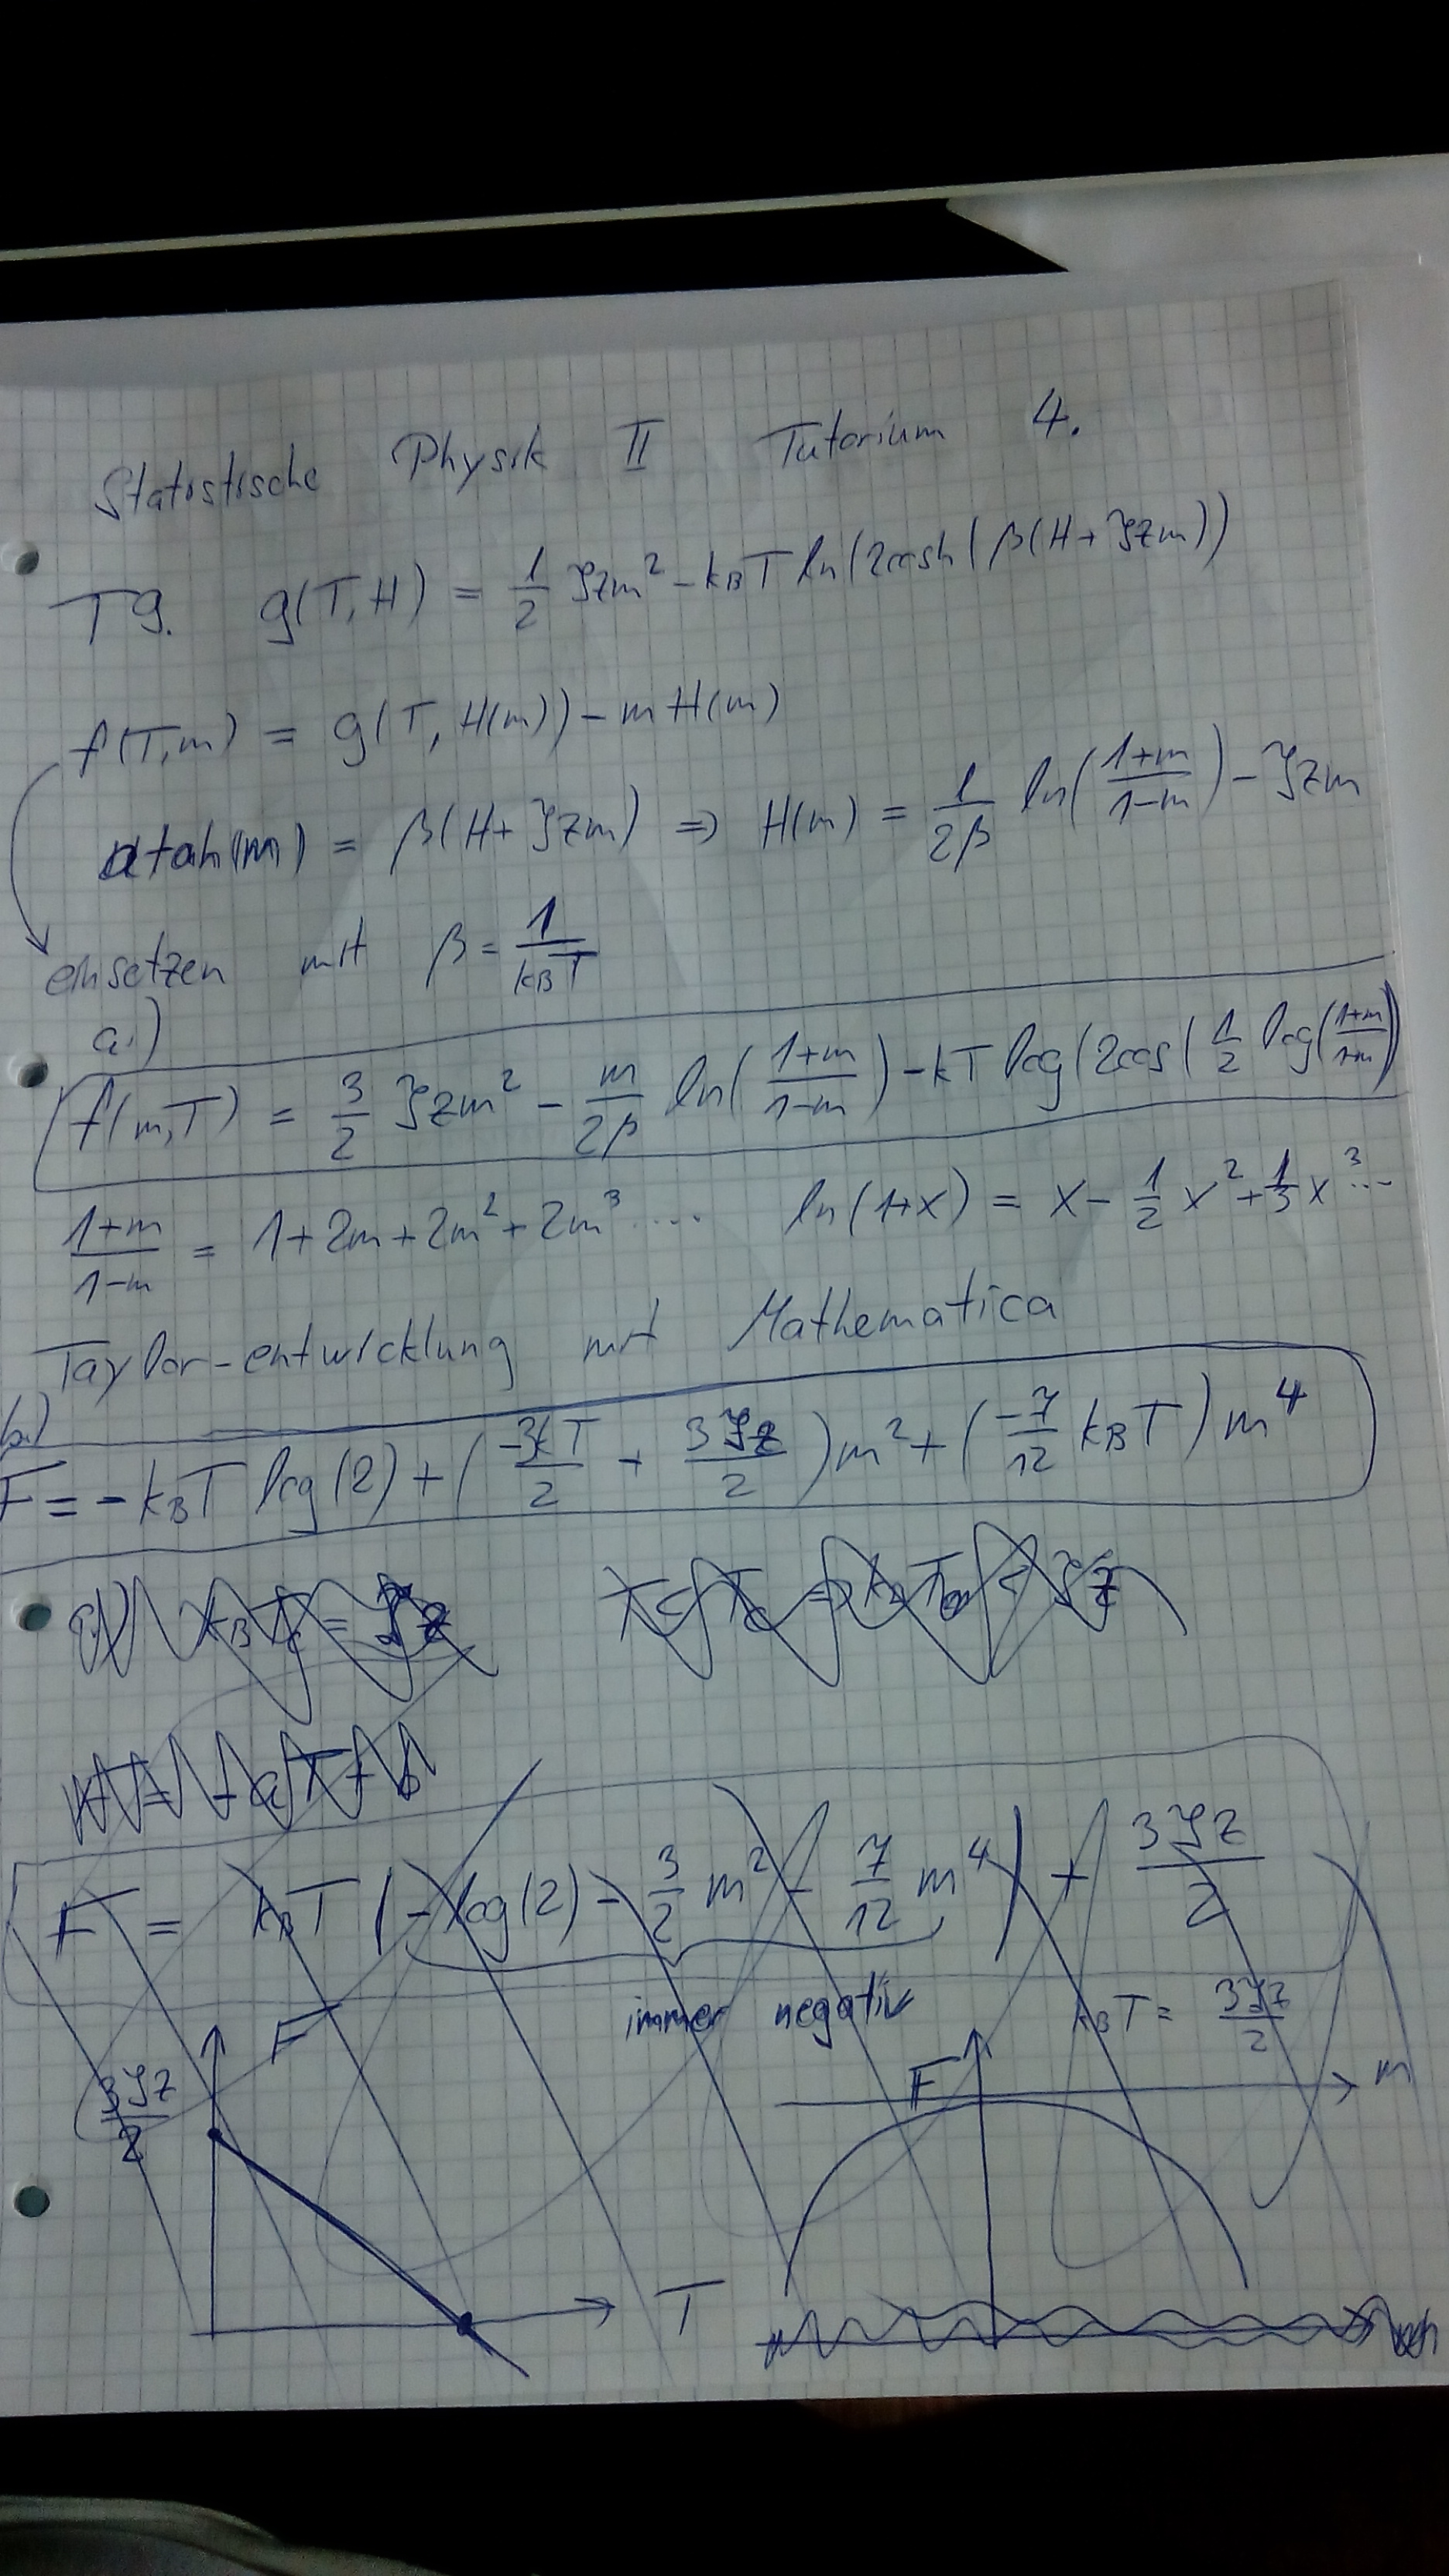 Statistische Physik II Tutorium 4.
T9. g(T,H) = 1/2 Jzm² - kBT ln(2cosh(β(H+Jzm))
f(T,m) = g(T,H(m)) - mH(m)
atah(m) = β(H+Jzm) ⇒ H(m) = 1/2β ln(1+m/1-m) - Jzm
einsetzen mit β = 1/kBT
a.)
f(m,T) = 3/2 Jzm² - m/2β ln(1+m/1-m) - kT log(2cos(1/2 log(1+m/1-m))
1+m/1-m = 1+2m+2m²+2m³.... ln(1+x) = x - 1/2 x² + 1/3 x³...
Taylor-entwicklung mit Mathematica
b.)
F = -kBT log(2) + (-3kT/2 + 3Jz/2)m² + (-7/12 kBT)m⁴
kBTc = Jz
F = kBT(-log(2) - 3/2 m² - 7/12 m⁴) + 3Jz/2
immer negativ kBT = 3Jz/2
F F m
3Jz/2
T